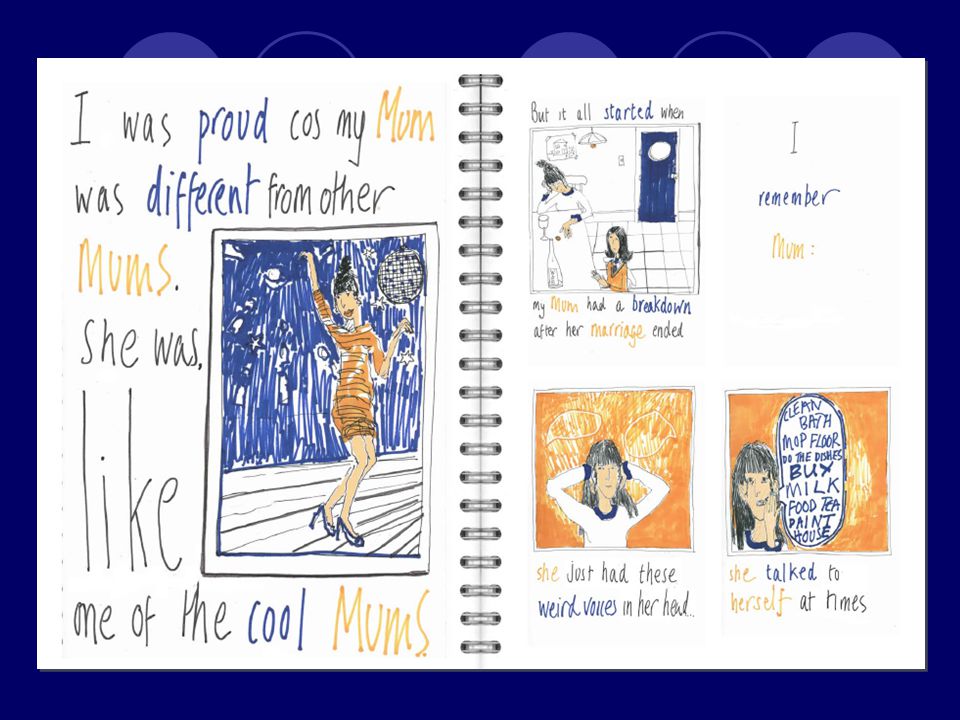 I was proud cos my Mum
was different from other
Mums.
she was,
like
one of the cool Mums.
But it all started when
my Mum had a breakdown
after her marriage ended
I
remember
Mum:
she just had these
weird voices in her head..
CLEAN
BATH
MOP FLOOR
DO THE DISHES
BUY
MILK
FOOD TEA
PAINT
HOUSE
she talked to
herself at times